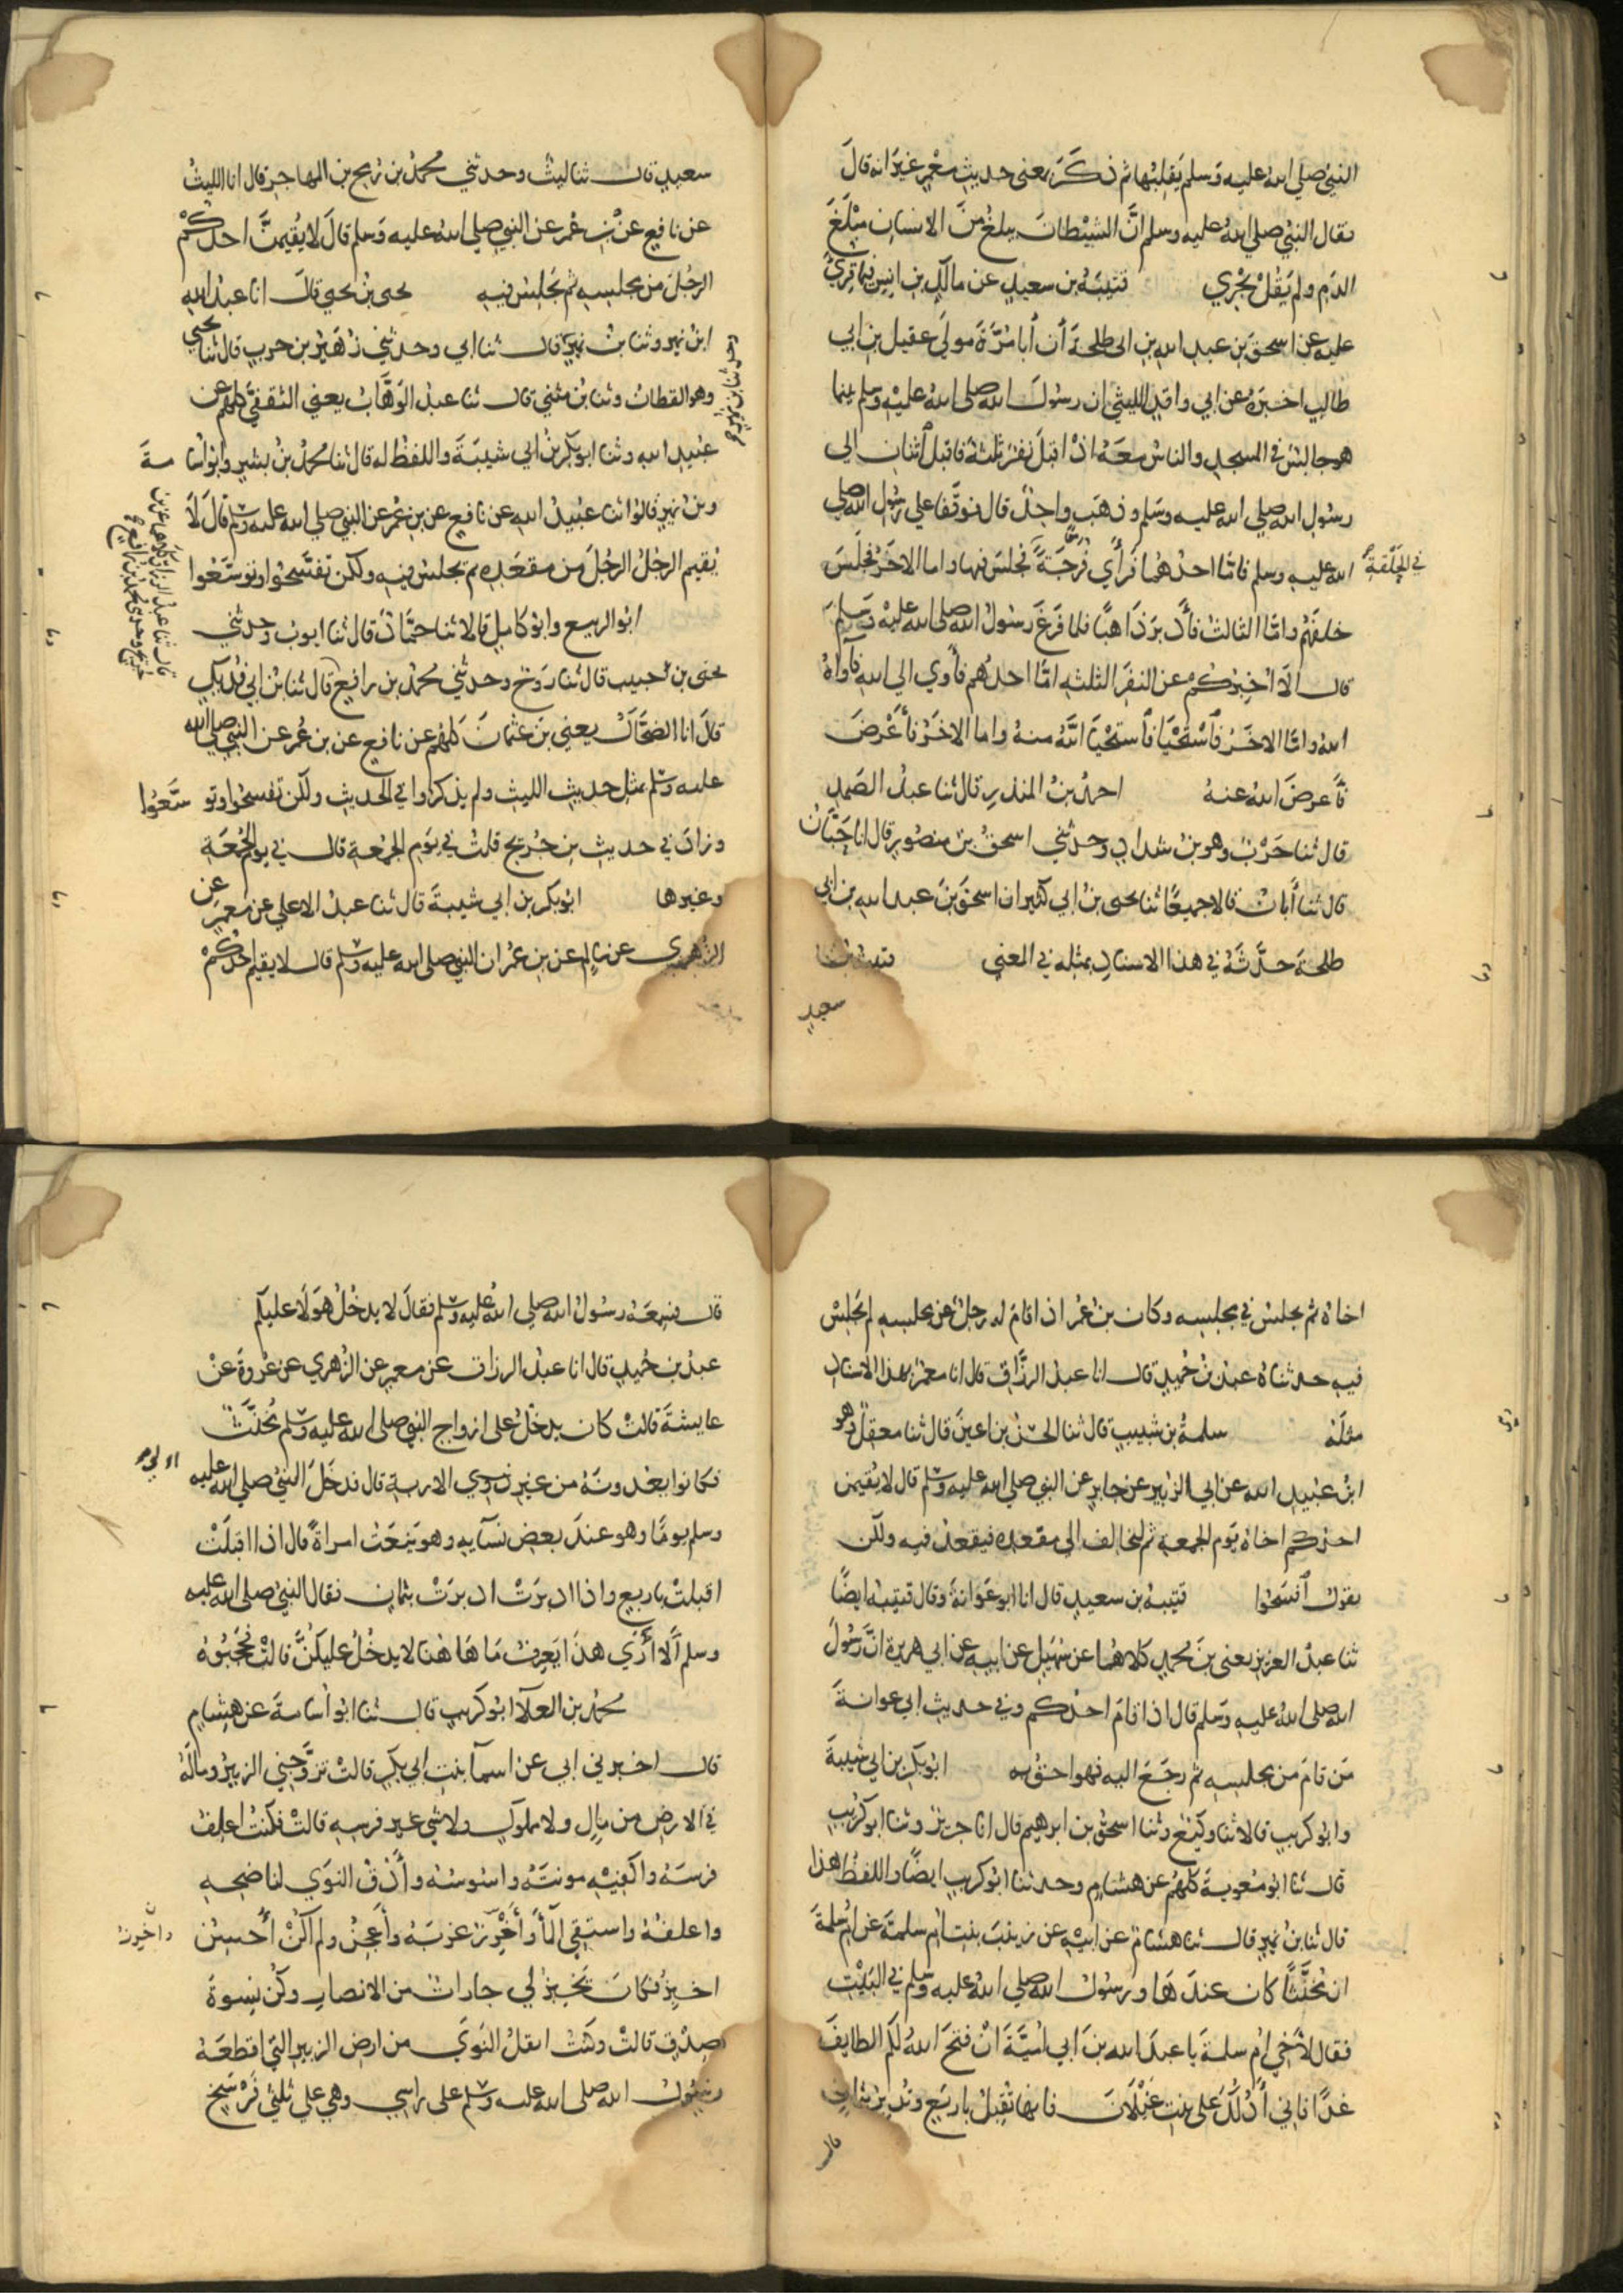 النبي صلى الله عليه وسلم يقلبها ثم ذكر بمعنى حديث معمر غير انه قال
فقال النبي صلى الله عليه وسلم ان الشيطان يبلغ من الانسان مبلغ
الدم ولم يقل يجري قتيبة بن سعيد عن مالك بن انس فيما قرئ
عليه عن اسحق بن عبد الله بن ابي طلحة أن أبا مرة مولى عقيل بن ابي
طالب اخبره عن ابي واقد الليثي ان رسول الله صلى الله عليه وسلم بينما
هو جالس في المسجد والناس معه اذ اقبل نفر ثلثة فاقبل اثنان الى
رسول الله صلى الله عليه وسلم وذهب واحد قال فوقفا على رسول الله صلى
الله عليه وسلم فاما احدهما فرأي فرجة فجلس فيها واما الاخر فجلس
في الحلقة
خلفهم واما الثالث فأدبر ذاهبا فلما فرغ رسول الله صلى الله عليه وسلم
قال الا اخبركم عن النفر الثلثه اما احدهم فأوي الى الله فآواه
الله واما الاخر فاستحيا فاستحيا الله منه واما الاخر فأعرض
فأعرض الله عنه احمد بن المنذر قال ثنا عبد الصمد
قال ثنا حرب وهو بن شداد وحدثني اسحق بن منصور قال انا حبان
قال ثنا أبان قالا جميعا ثنا يحيى بن ابي كثير ان اسحق بن عبد الله بن ابي
طلحة حدثه في هذا الاسناد بمثله في المعني قتيبة بن
سعيد
سعيد قال ثنا ليث وحدثني محمد بن رمح بن المهاجر قال انا الليث
عن نافع عن بن عمر عن النبي صلى الله عليه وسلم قال لا يقيمن احدكم
الرجل من مجلسه ثم يجلس فيه يحيى بن يحيى قال انا عبد الله
ابن نمير وثنا بن نمير قال ثنا ابي وحدثني زهير بن حرب قال ثنا يحيى
وهو القطان وثنا بن مثني قال ثنا عبد الوهاب يعني الثقفي كلهم عن
عبيد الله وثنا ابو بكر بن ابي شيبة واللفظ له قال ثنا محمد بن بشر وابو اسامة
وبن نمير قالوا ثنا عبيد الله عن نافع عن بن عمر عن النبي صلى الله عليه وسلم قال لا
يقيم الرجل الرجل من مقعده ثم يجلس فيه ولكن تفسحوا وتوسعوا
ابو الربيع وابو كامل قالا ثنا حماد قال ثنا ايوب وحدثني
يحيى بن حبيب قال ثنا روح وحدثني محمد بن رافع قال ثنا بن ابي فديك
قال انا الضحاك يعني بن عثمان كلهم عن نافع عن بن عمر عن النبي صلى الله
عليه وسلم بمثل حديث الليث ولم يذكروا في الحديث ولكن تفسحوا وتوسعوا
وزاد في حديث بن جريج قلت في يوم الجمعة قال في يوم الجمعة
وغيرها ابو بكر بن ابي شيبة قال ثنا عبد الاعلى عن معمر عن
الزهري عن سالم عن بن عمر ان النبي صلى الله عليه وسلم قال لا يقيم احدكم
اخاه ثم يجلس في مجلسه وكان بن عمر اذا قام له رجل عن مجلسه لم يجلس
فيه حدثناه عبد بن حميد قال انا عبد الرزاق قال انا معمر بهذا الاسناد
مثله سلمة بن شبيب قال ثنا الحسن بن اعين قال ثنا معقل وهو
ابن عبيد الله عن ابي الزبير عن جابر عن النبي صلى الله عليه وسلم قال لا يقيمن
احدكم اخاه يوم الجمعة ثم ليخالف الى مقعده فيقعد فيه ولكن
يقول أفسحوا قتيبة بن سعيد قال انا ابو عوانة وقال قتيبة ايضا
ثنا عبد العزيز يعني بن محمد كلاهما عن سهيل عن ابيه عن ابي هريرة ان رسول
الله صلى الله عليه وسلم قال اذا قام احدكم وفي حديث ابي عوانة
من قام من مجلسه ثم رجع اليه فهو احق به ابو بكر بن ابي شيبة
وابو كريب قالا ثنا وكيع وثنا اسحق بن ابرهيم قال انا جرير وثنا ابو كريب
قال ثنا ابو معوية كلهم عن هشام وحدثنا ابو كريب ايضا واللفظ هذا
قال ثنا بن نمير قال ثنا هشام عن ابيه عن زينب بنت ام سلمة عن ام سلمة
ان مخنثا كان عندها ورسول الله صلى الله عليه وسلم في البيت
فقال لأخي ام سلمة يا عبد الله بن ابي امية ان فتح الله لكم الطايف
غدا فاني أدلك على بنت غيلان فانها تقبل باربع وتدبر بثمان
قال
قال فسمعه رسول الله صلى الله عليه وسلم فقال لا يدخل هولا عليكم
عبد بن حميد قال انا عبد الرزاق عن معمر عن الزهري عن عروة عن
عايشة قالت كان يدخل على ازواج النبي صلى الله عليه وسلم مخنث
فكانوا يعدونه من غير ذوي الاربة قال فدخل النبي صلى الله عليه
وسلم يوما وهو عند بعض نسآيه وهو ينعت امراة قال اذا اقبلت
اقبلت باربع واذا ادبرت ادبرت بثمان فقال النبي صلى الله عليه
وسلم ألا أرى هذا يعرف ما هاهنا لا يدخل عليكن قالت فحجبوه
محمد بن العلآ ابو كريب قال ثنا ابو أسامة عن هشام
قال اخبرني ابي عن اسمآ بنت ابي بكر قالت تزوجني الزبير وماله
في الارض من مال ولا مملوك ولا شي غير فرسه قالت فكنت اعلف
فرسه واكفيه مونته واسوسه وأدق النوي لناضحه
واعلفه واستقي المأ وأخرز غربه وأعجن ولم اكن أحسن
اخبز فكان تخبز لي جارات من الانصار وكن نسوة
صدق قالت وكنت انقل النوى من ارض الزبير التي اقطعه
رسول الله صلى الله عليه وسلم على راسي وهي على ثلثي فرسخ